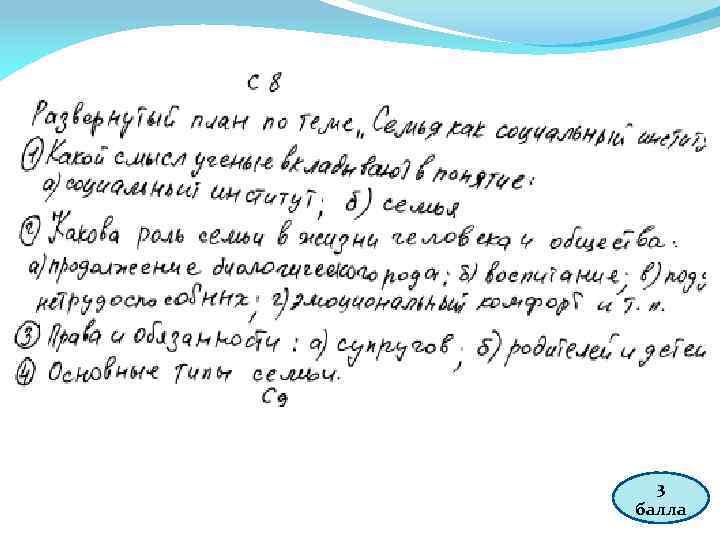 С 8
Развернутый план по теме „Семья как социальный институ
① Какой смысл ученые вкладывают в понятие:
а) социальный институт; б) семья
② Какова роль семьи в жизни человека и общества:
а) продолжение биологического рода; б) воспитание; в) подд
нетрудоспособных; г) эмоциональный комфорт и т.п.
③ Права и обязанности: а) супругов; б) родителей и детей
④ Основные типы семьи.
С 9
3
балла